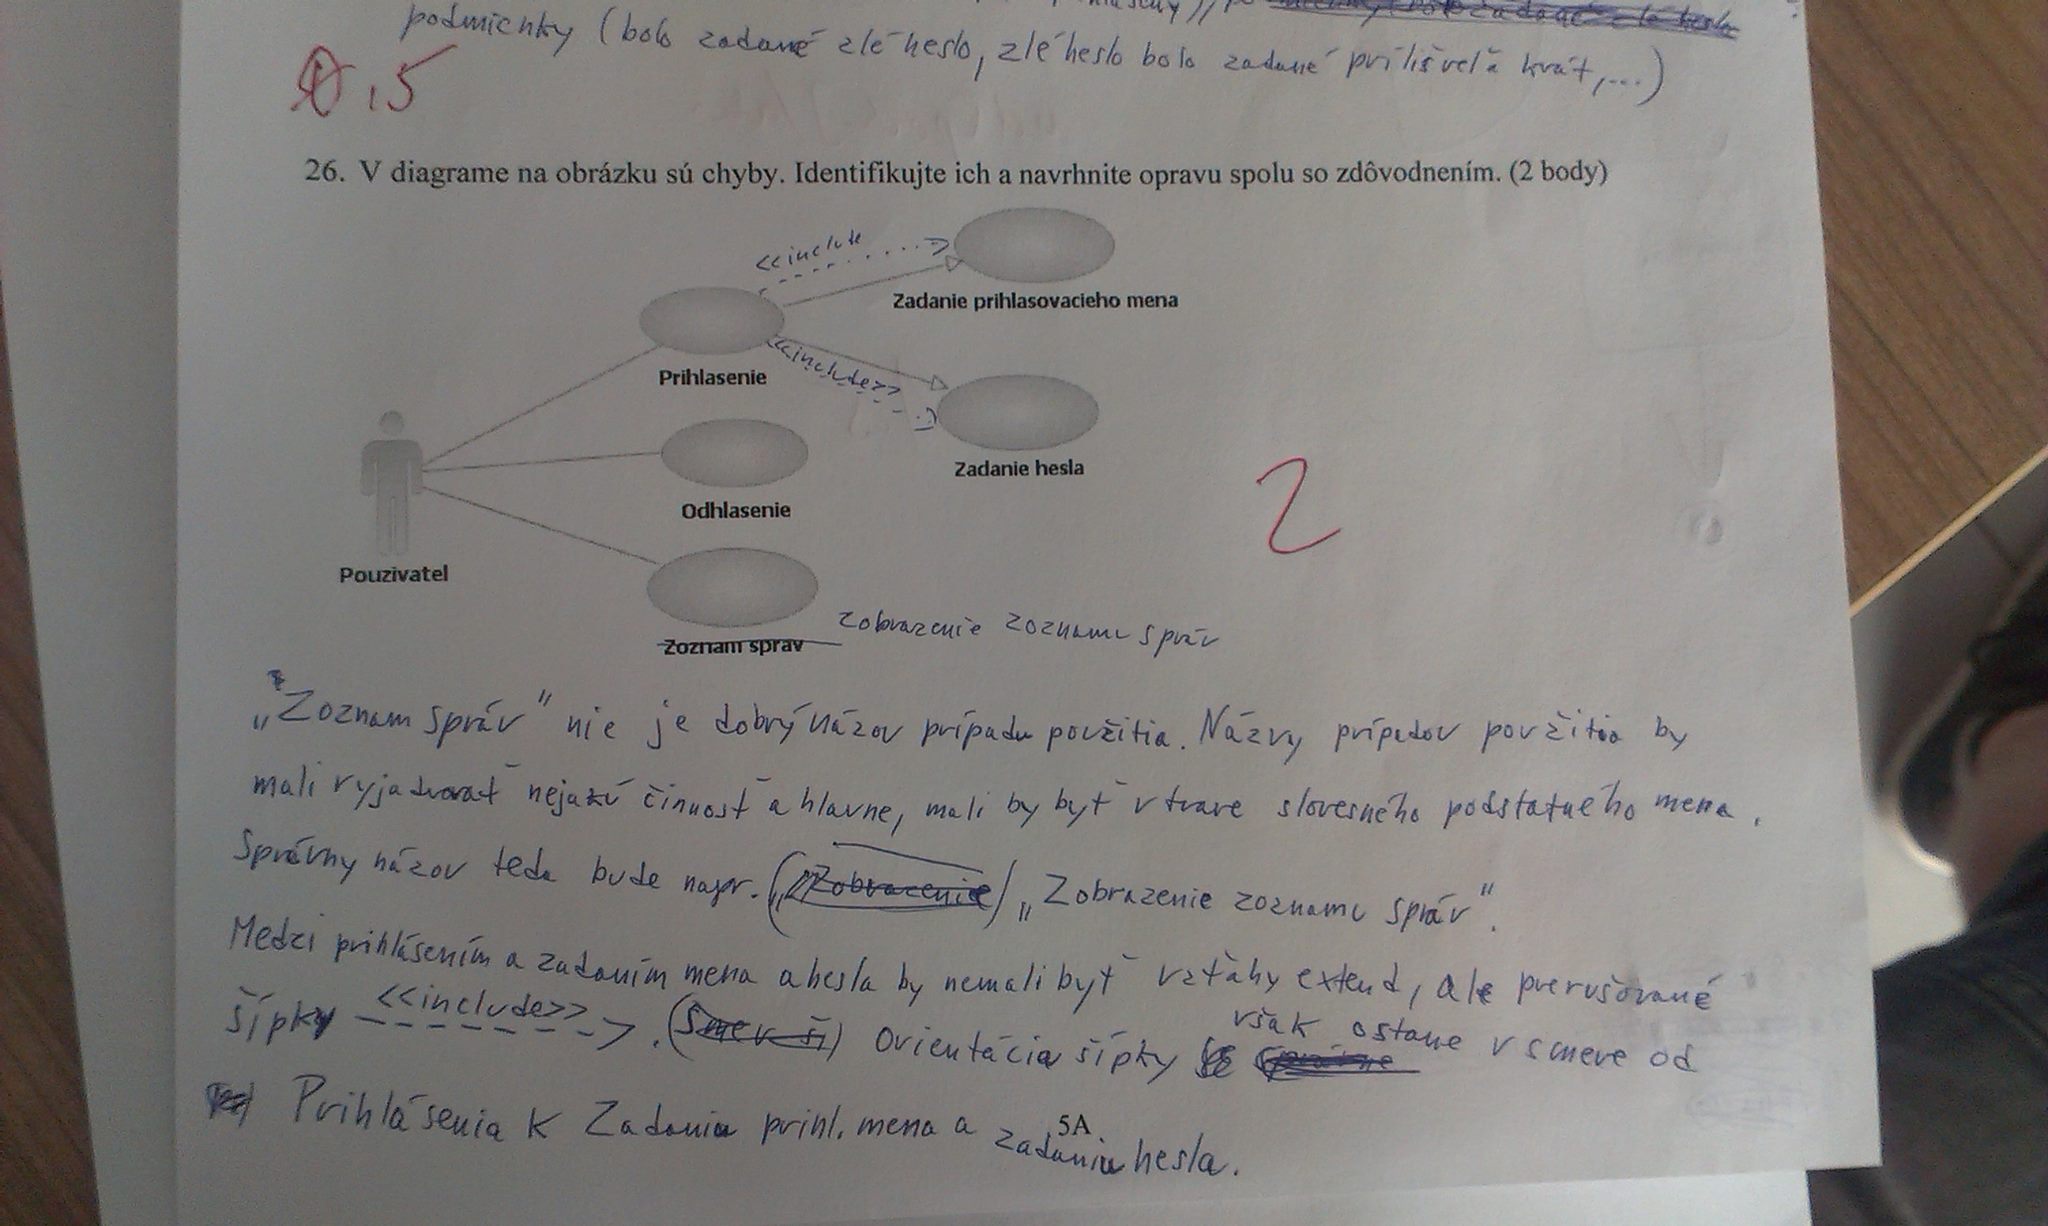 podmienky (bolo zadané zlé heslo, zlé heslo bolo zadané príliš veľa krát,...)
0,5
26. V diagrame na obrázku sú chyby. Identifikujte ich a navrhnite opravu spolu so zdôvodnením. (2 body)
<<include
Zadanie prihlasovacieho mena
<<include>>
Prihlasenie
Zadanie hesla
Odhlasenie
2
Pouzivatel
Zoznam sprav Zobrazenie zoznamu správ
„Zoznam správ" nie je dobrý názov prípadu použitia. Názvy prípadov použitia by
mali vyjadrovať nejakú činnosť a hlavne, mali by byť v tvare slovesného podstatného mena.
Správny názov teda bude napr. („Zobrazenie) „Zobrazenie zoznamu správ".
Medzi prihlásením a zadaním mena a hesla by nemali byť vzťahy extend, ale prerušované
šípky <<include>>. (Smer ší) Orientácia šípky však ostane v smere od
Prihlásenia k Zadaniu prihl. mena a zadaniu hesla.
5A